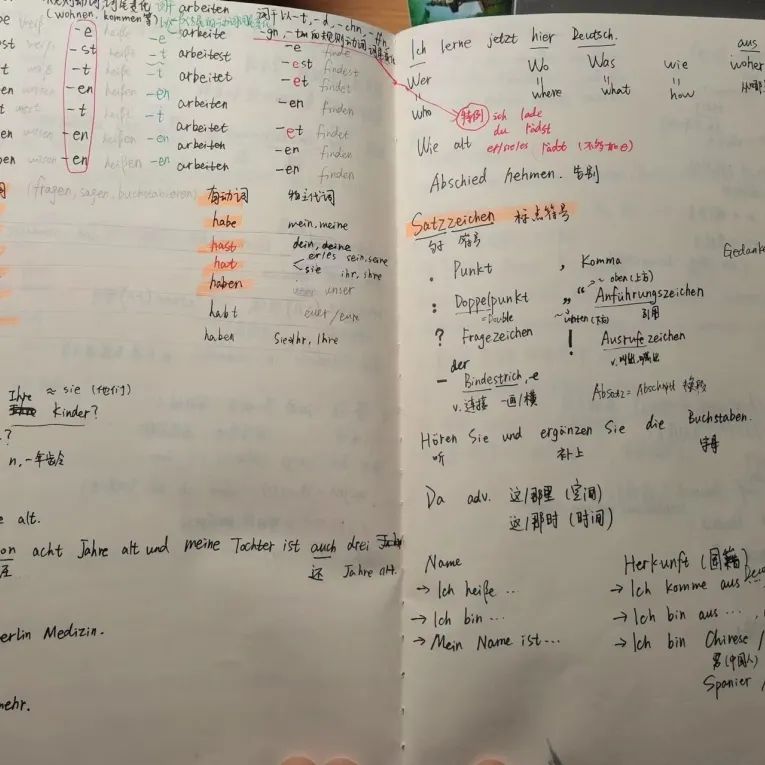 (wohnen, kommen等)
-e heiße -e arbeite -e finde
-st -t arbeitest -est findest
-t -t arbeitet -et findet
-en heißen -en arbeiten -en finden
-t -t arbeitet -et findet
-en heißen -en arbeiten -en finden
-en heißen -en arbeiten -en finden
词干 arbeiten
词干以-t, -d, -chn, -ffn,
-gn, -tm的规则动词
(fragen, sagen, buchstabieren) 有动词 物主代词
habe mein, meine
hast dein, deine
hat er/es sein, seine
sie ihr, ihre
haben unser
habt euer / eure
haben Sie→Ihr, Ihre
Ihre ≈ sie (他们)
Kinder?
n, 一年龄
alt.
acht Jahre alt und meine Tochter ist auch drei
还 Jahre alt.
erlin Medizin.
mehr.
Ich lerne jetzt hier Deutsch. aus
Wer Wo Was wie woher
who where what how
特例 ich lade
du lädst
Wie alt er/sie/es lädt (不加e)
Abschied nehmen. 告别
Satzzeichen 标点符号
句子 符号
. Punkt , Komma Gedank
: Doppelpunkt „ “ ~ oben (上方) Anführungszeichen
=Double ~ unten (下方) 引用
? Fragezeichen ! Ausrufezeichen
der
– Bindestrich, -e
v. 连接 一画/横 Absatz = Abschnitt
Hören Sie und ergänzen Sie die Buchstaben.
听 补上 字母
Da adv. 这/那里 (空间)
这/那时 (时间)
Name Herkunft (国籍)
→ Ich heiße ... → Ich komme aus ...
→ Ich bin ... → Ich bin aus ...
→ Mein Name ist ... → Ich bin Chinese /
男 (中国人)
Spanier /